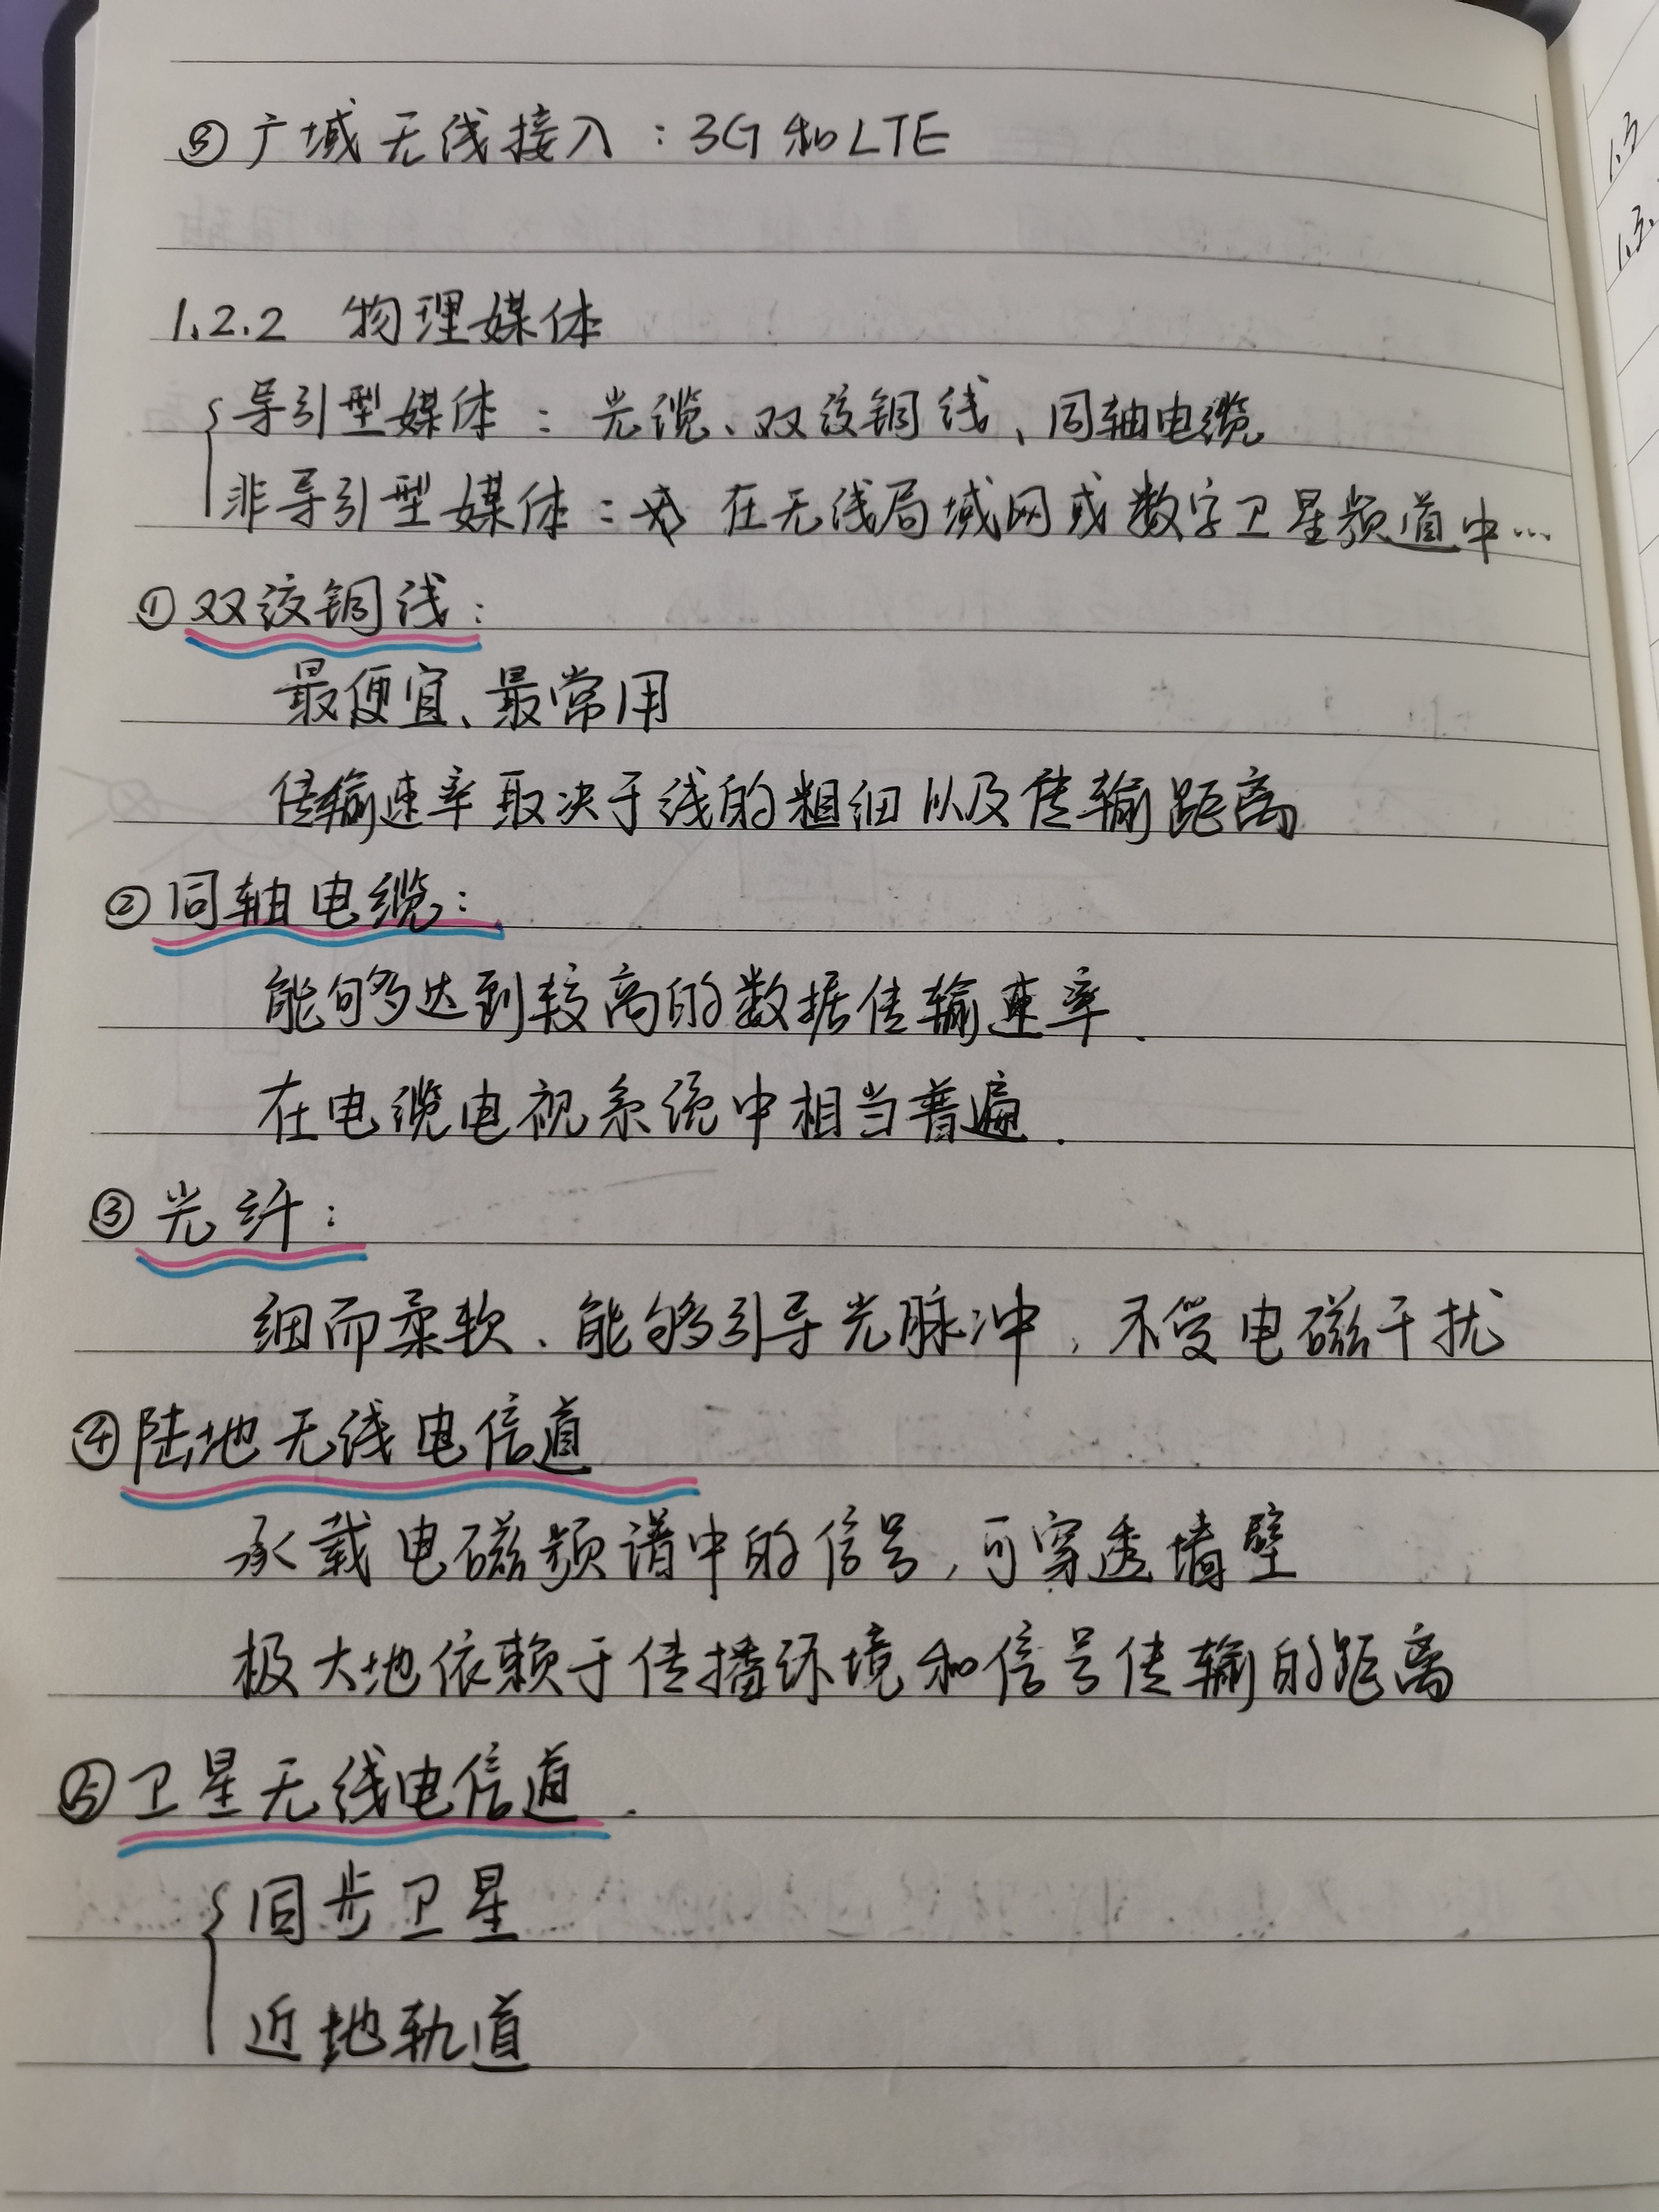 ⑤广域无线接入：3G和LTE
1.2.2 物理媒体
导引型媒体：光缆、双绞铜线、同轴电缆
非导引型媒体：在无线局域网或数字卫星频道中…
①双绞铜线：
最便宜、最常用
传输速率取决于线的粗细以及传输距离
②同轴电缆：
能够达到较高的数据传输速率.
在电缆电视系统中相当普遍.
③光纤：
细而柔软、能够引导光脉冲，不受电磁干扰
④陆地无线电信道
承载电磁频谱中的信号，可穿透墙壁
极大地依赖于传播环境和信号传输的距离
⑤卫星无线电信道.
同步卫星
近地轨道
1.3